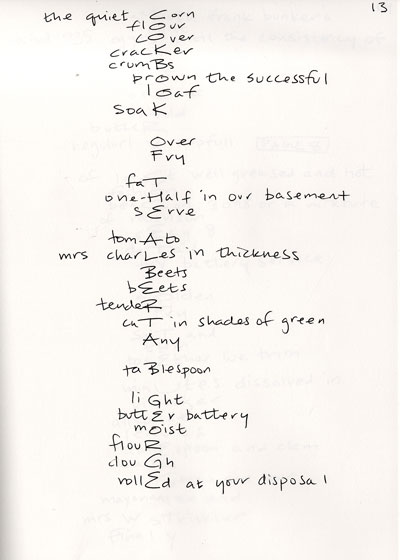 13
the quiet Corn
flOur
cOver
cracKer
crumBs
brOwn the successful
lOaf
soaK
Over
Fry
faT
one-Half in our basement
sErve
tomAto
mrs charLes in thickness
Beets
bEets
tendeR
cuT in shades of green
Any
taBlespoon
liGht
buttEr battery
mOist
flouR
douGh
rollEd at your disposal